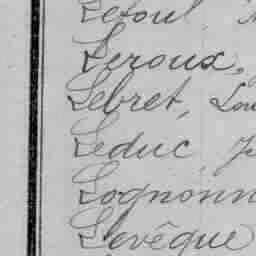 Leroux,
Lebret, Lou
Leduc
Lognonn
Levêque